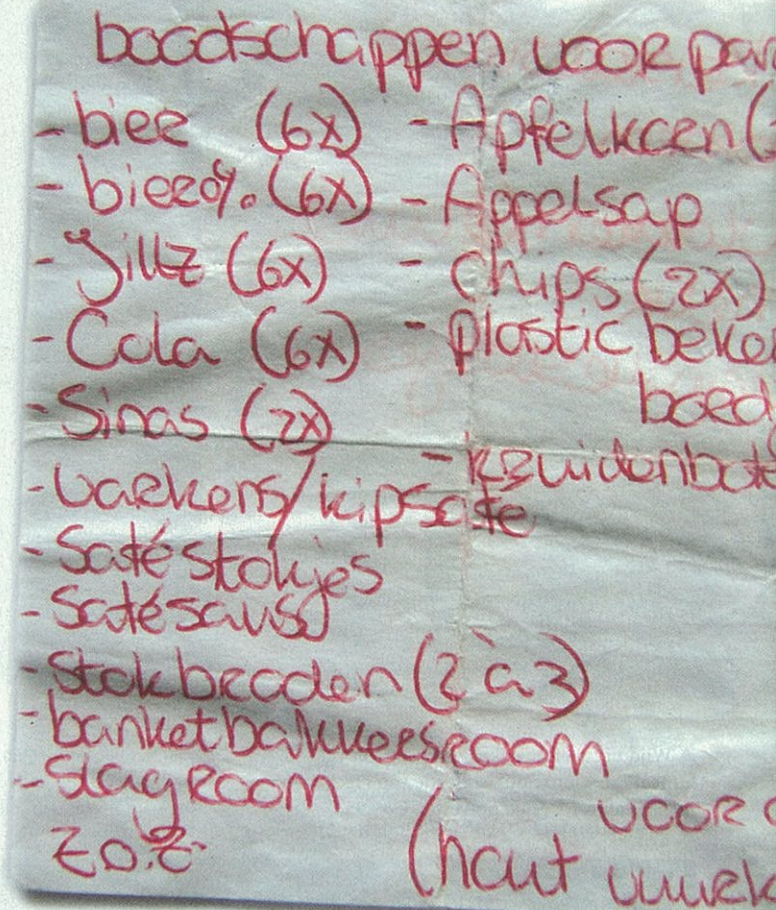 boodschappen voor
- bier (6x)
- bier 0%. (6x)
- Jillz (6x)
- Cola (6x)
- Sinas (2x)
- varkens/kipsate
- Satéstokjes
- Satésaus
- Stokbroden (2 à 3)
- banketbakkersroom
- Slagroom
z.o.z
- Apfelkoen (
- Appelsap
- chips (2x)
- plastic beke
bord
- kruidenbot
voor
(hout vuurk